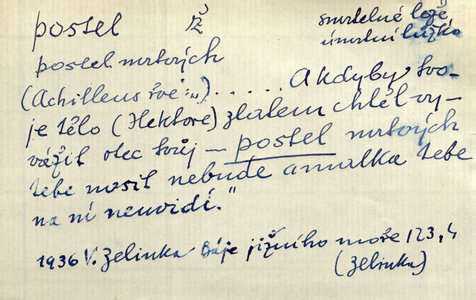 postel ž
smrtelné lože
úmrtní lůžko
postel mrtvých
(Achilleus řve:„)..... A kdyby tvo-
je tělo (Hektore) zlatem chtěl vy-
vážit otec tvůj – postel mrtvých
tebe nosit nebude a matka tebe
na ní neuvidí."
1936 V. Zelinka Báje jižního moře 123,4
(Zelinka)